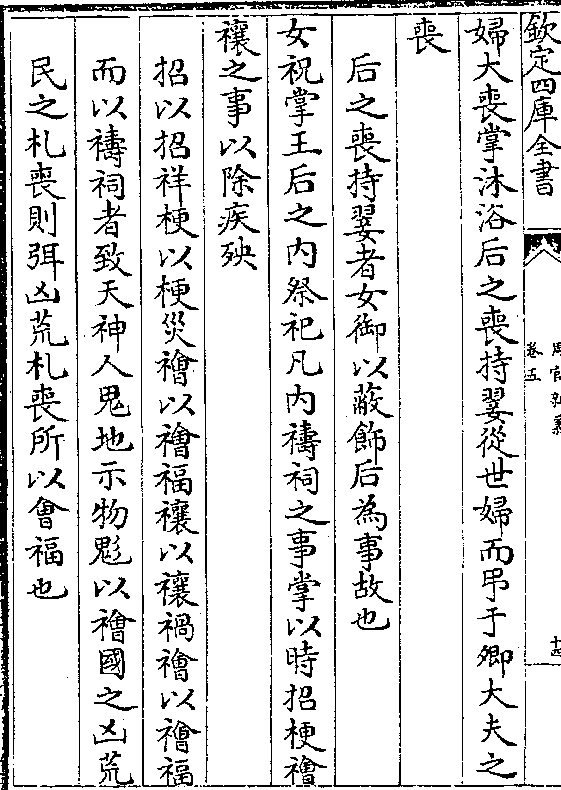 欽定四庫全書
周官新義
卷五
十四
婦大喪掌沐浴后之喪持翣從世婦而弔于卿大夫之
喪
后之喪持翣者女御以蔽飾后為事故也
女祝掌王后之内祭祀凡内禱祠之事掌以時招梗禬
禳之事以除疾殃
招以招祥梗以梗災禬以禬福禳以禳禍禬以禬福
而以禱祠者致天神人鬼地示物鬽以禬國之凶荒
民之札喪則弭凶荒札喪所以會福也